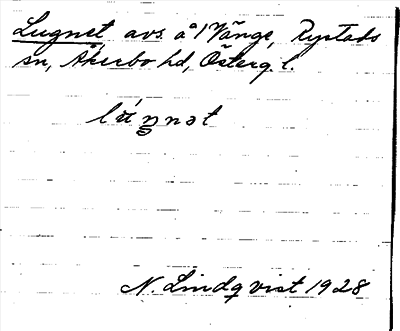 Lugnet avs. å 1 Vänge, Rystads
sn, Åkerbo hd, Österg. l.
N. Lindqvist 1928